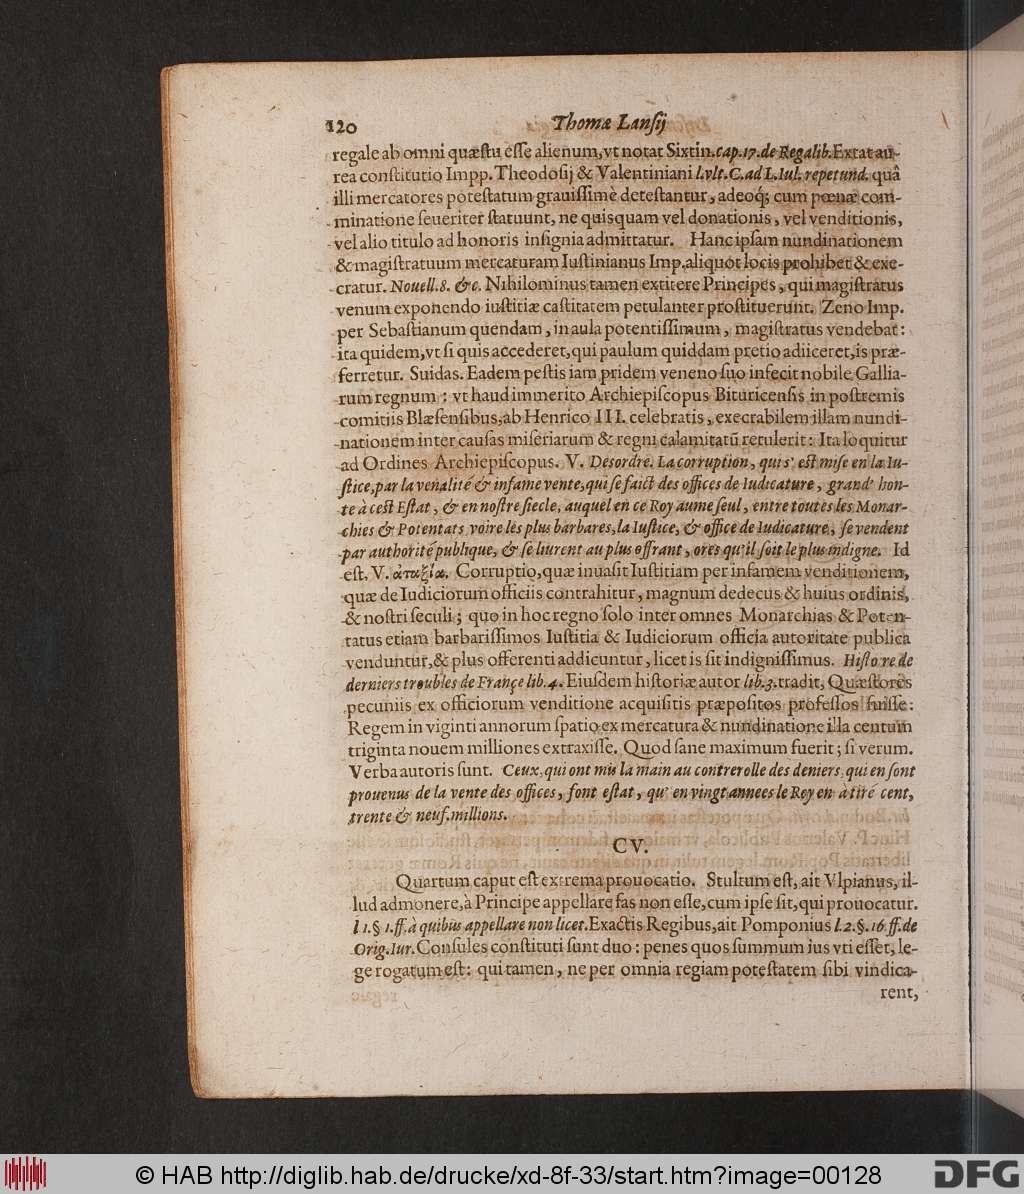 120 Thomæ Lanſij
regale ab omni quæſtu eſſe alienum, vt notat Sixtin. cap. 17. de Regalib. Extat au-
rea conſtitutio Impp. Theodoſij & Valentiniani l. vlt. C. ad L. Iul. repetund. quâ
illi mercatores poteſtatum grauiſſimè deteſtantur, adeoq́; cum pœnæ com-
minatione ſeueriter ſtatuunt, ne quisquam vel donationis, vel venditionis,
vel alio titulo ad honoris inſignia admittatur. Hanc ipſam nundinationem
& magiſtratuum mercaturam Iuſtinianus Imp. aliquot locis prohibet & exe-
cratur. Nouell. 8. &c. Nihilominus tamen extitere Principes, qui magiſtratus
venum exponendo iuſtitiæ caſtitatem petulanter proſtituerunt. Zeno Imp.
per Sebaſtianum quendam, in aula potentiſſimum, magiſtratus vendebat:
ita quidem, vt ſi quis accederet, qui paulum quiddam pretio adiiceret, is præ-
ferretur. Suidas. Eadem peſtis iam pridem veneno ſuo infecit nobile Gallia-
rum regnum: vt haud immerito Archiepiſcopus Bituricenſis in poſtremis
comitiis Blæſenſibus, ab Henrico III. celebratis, execrabilem illam nundi-
nationem inter cauſas miſeriarum & regni calamitatũ retulerit: Ita loquitur
ad Ordines Archiepiſcopus. V. Desordre. La corruption, qui s' eſt miſe en la Iu-
ſtice, par la venalité & infame vente, qui ſe faict des offices de Iudicature, grand' hon-
te à ceſt Eſtat, & en noſtre ſiecle, auquel en ce Royaume ſeul, entre toutes les Monar-
chies & Potentats voire les plus barbares, la Iuſtice, & office de Iudicature, ſe vendent
par authorité publique, & ſe liurent au plus offrant, ores qu'il ſoit le plus indigne. Id
eſt. V. ἀταξία. Corruptio, quæ inuaſit Iuſtitiam per infamem venditionem,
quæ de Iudiciorum officiis contrahitur, magnum dedecus & huius ordinis,
& noſtri ſeculi; quo in hoc regno ſolo inter omnes Monarchias & Poten-
tatus etiam barbariſſimos Iuſtitia & Iudiciorum officia autoritate publica
venduntur, & plus offerenti addicuntur, licet is ſit indigniſſimus. Hiſtoire de
derniers troubles de Françe lib. 4. Eiuſdem hiſtoriæ autor lib. 3. tradit, Quæſtores
pecuniis ex officiorum venditione acquiſitis præpoſitos profeſſos fuiſſe:
Regem in viginti annorum ſpatio ex mercatura & nundinatione illa centum
triginta nouem milliones extraxiſſe. Quod ſane maximum fuerit; ſi verum.
Verba autoris ſunt. Ceux, qui ont mis la main au contrerolle des deniers, qui en ſont
prouenus de la vente des offices, font eſtat, qu' en vingt annees le Roy en a tiré cent,
trente & neuf. millions.
CV.
Quartum caput eſt extrema prouocatio. Stultum eſt, ait Vlpianus, il-
lud admonere, à Principe appellare fas non eſſe, cum ipſe ſit, qui prouocatur.
l 1. § 1. ff. à quibus appellare non licet. Exactis Regibus, ait Pomponius l. 2. §. 16. ff. de
Orig. Iur. Conſules conſtituti ſunt duo: penes quos ſummum ius vti eſſet, le-
ge rogatum eſt: qui tamen, ne per omnia regiam poteſtatem ſibi vindica-
rent,
© HAB http://diglib.hab.de/drucke/xd-8f-33/start.htm?image=00128
DFG